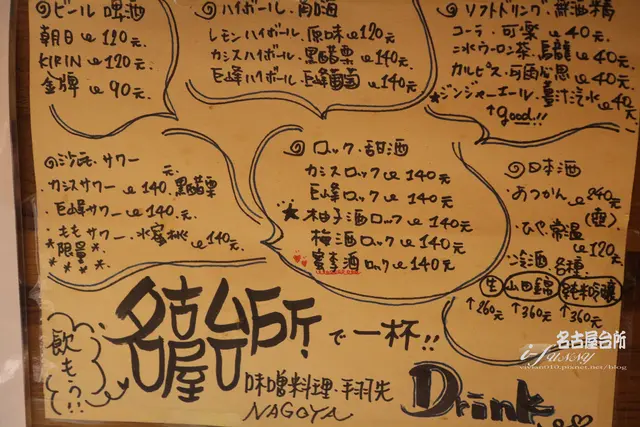 ビール 啤酒
朝日 120元
KIRIN 120元
金牌 90元
ハイボール・調酒
レモンハイボール・原味 120元
カシスハイボール・黒醋栗 140元
巨峰ハイボール・巨峰葡萄 140元
ソフトドリンク・無酒精
コーラ・可樂 40元
ニ水ウーロン茶・烏龍 40元
カルピス・可爾必思 40元
★ジンジャーエール・薑汁汽水 40元
↑good!!
沙瓦・サワー
・カシスサワー 140元 黒醋栗
・巨峰サワー 140元
・ももサワー・水蜜桃 140元
*限量*
ロック・甜酒
カシスロック 140元
巨峰ロック 140元
★柚子酒ロック 140元
梅酒ロック 140元
蜜李酒ロック 140元
日本酒
・あつかん 240元
・ひや・常温 120元
・冷酒 各種
生 山田錦 純米吟醸
↑260元 ↑360元 ↑360元
飲もう?!
名古屋台所!で一杯!!
味噌料理・手羽先
NAGOYA
Drink
名古屋台所
vivian010.pixnet.net/blog